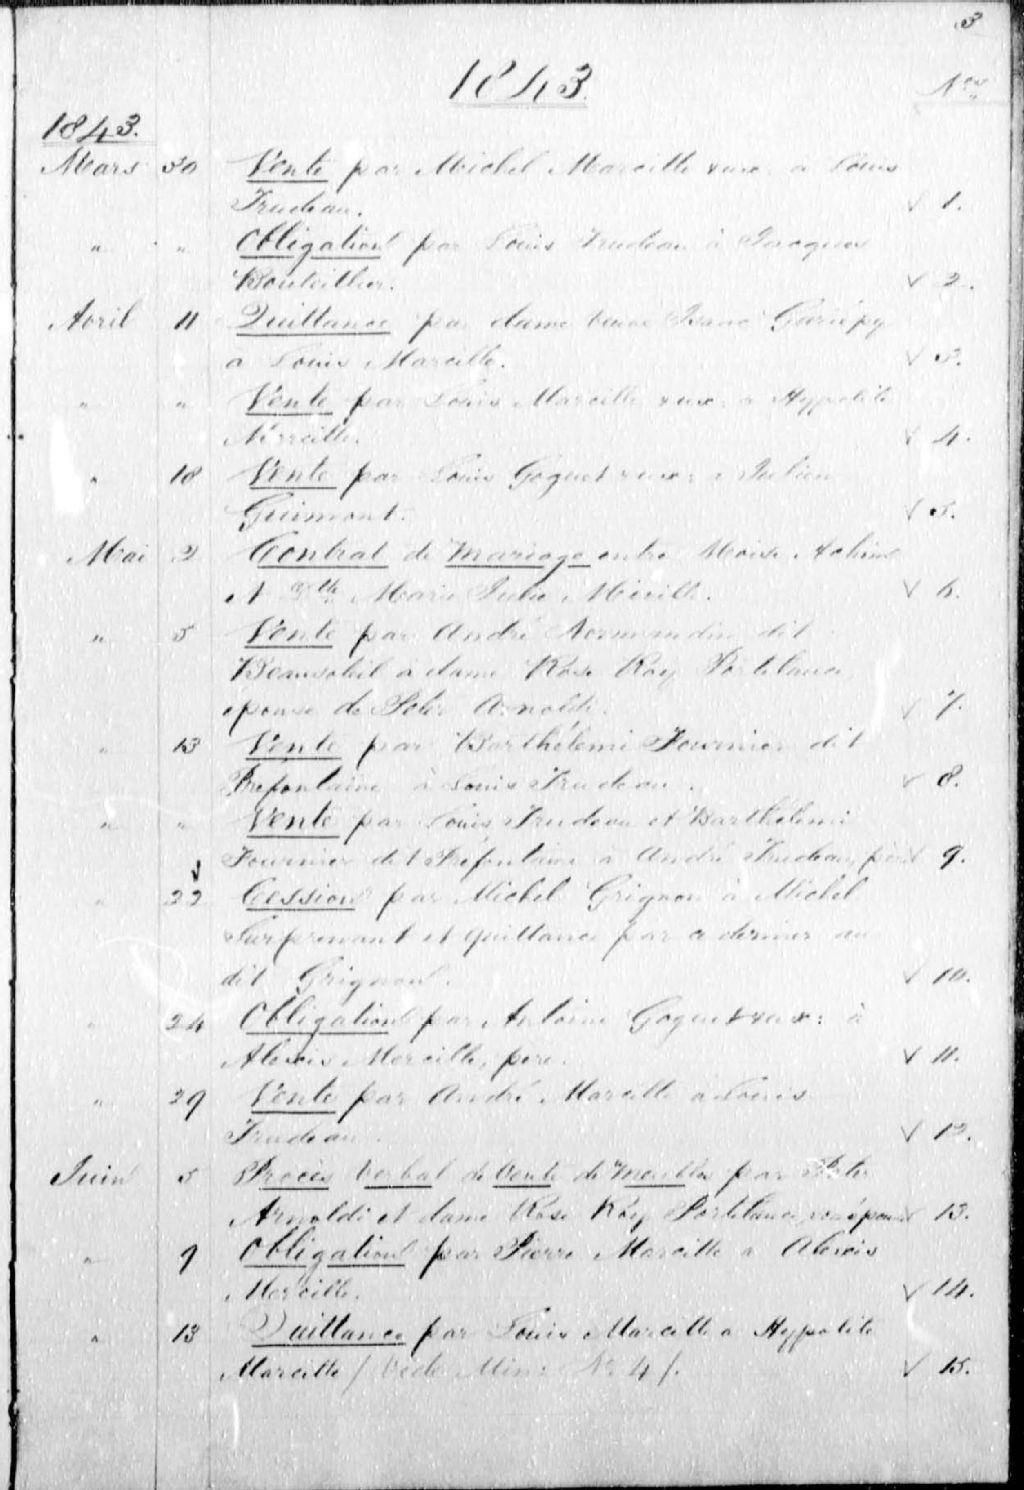 3
1843.
Nos
1843.
Mars 30 Vente par Michel Marcille & ux: a Louis
Trudeau. V 1.
" " Obligation par Louis Trudeau à Jacques
Bouteiller. V 2.
Avril 11 Quittance par dame veuve Isaac Gariépy
a Louis Marcille. V 3.
" " Vente par Louis Marcille & ux: a Hyppolite
V 4.
" 18 Vente par Louis Goguet & ux: a Julien
Guimont. V 5.
Mai 2 Contrat de mariage entre Moise Achim
et Dlle Marie Julie V 6.
" 5 Vente par André Normandin dit
Beausoleil à dame Rose Roy Portelance
épouse de Peter Arnoldi. V 7.
" 13 Vente par Barthélemi Fournier dit
Prefontaine à Louis Trudeau. V 8.
" " Vente par Louis Trudeau et Barthélemi
Fournier dit Préfontaine à André Trudeau, père 9.
" 22 Cession par Michel Grignon à Michel
Surprenant et quittance par ce dernier au
dit Grignon. V 10.
" 24 Obligation par Antoine Goguet & ux: à
Alexis Marcille, père. V 11.
" 29 Vente par André Marcille a Louis
Trudeau. V 12.
Juin 5 Procès Verbal de Vente de Meubles par Peter
Arnoldi et dame Rose Roy Portelance, son épouse 13.
" 9 Obligation par Pierre Marcille a Alexis
Marcille. V 14.
" 13 Quittance par Louis Marcille a Hyppolite
Marcille / Vide Min: No 4 /. V 15.